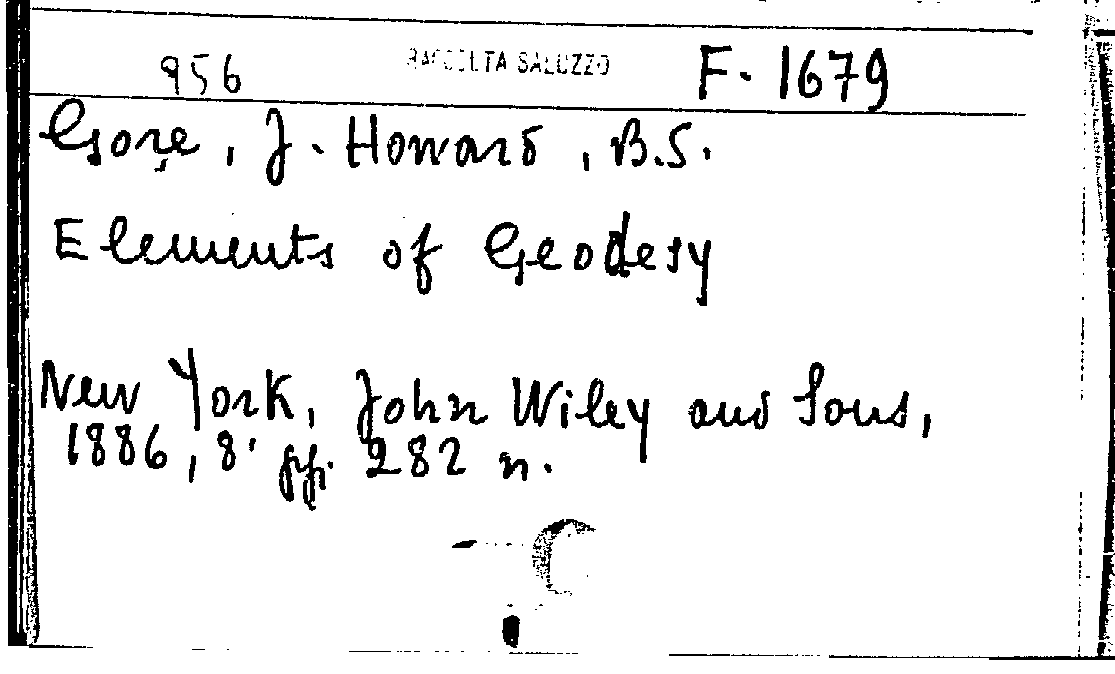 956 RACCOLTA SALUZZO F. 1679
Gore, J. Howard, B.S.
Elements of Geodesy
New York, John Wiley and Sons,
1886, 8° pp. 282 n.